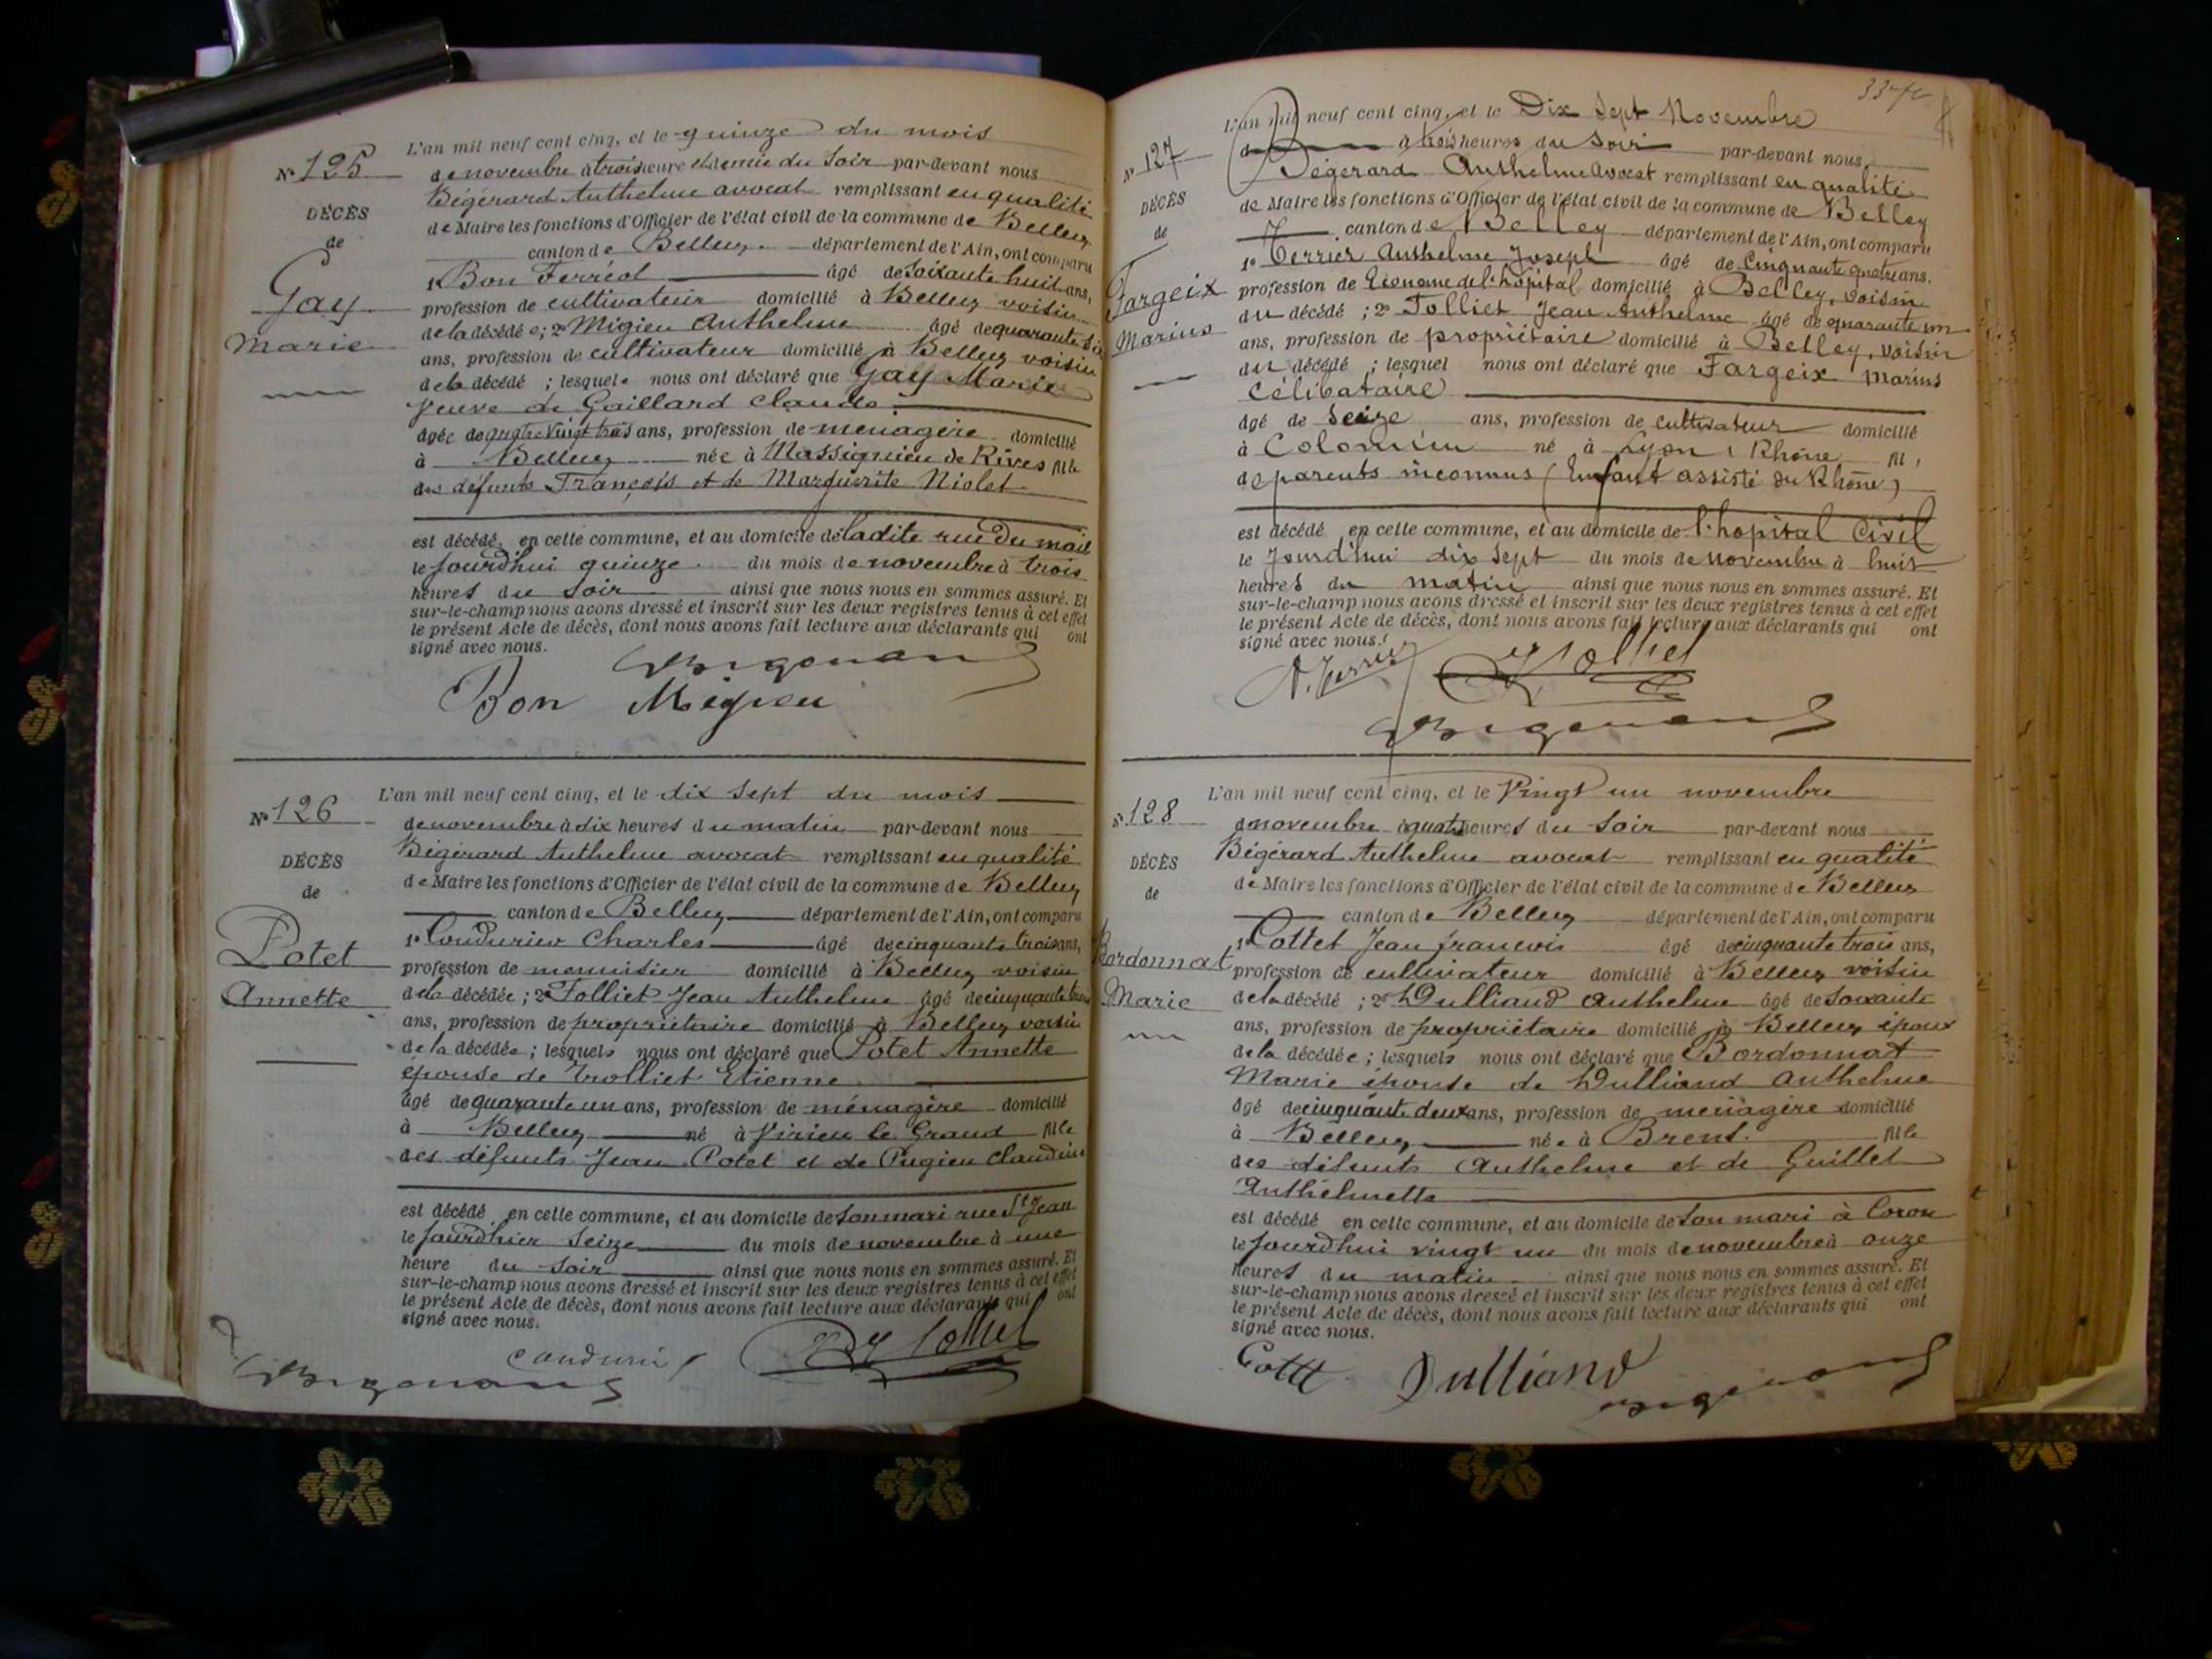 L'an mil neuf cent cinq, et le quinze du mois
N° 125
de novembre à trois heure et demie du soir par-devant nous
Bégérard Anthelme avocat remplissant en qualité
DÉCÈS
de Maire les fonctions d'Officier de l'état civil de la commune de Belley
de
canton de Belley département de l'Ain, ont comparu
Gay
1° Bon Ferréol âgé de soixante huit ans,
profession de cultivateur domicilié à Belley voisin
Marie
de la décédée ; 2° Migieu Anthelme âgé de quarante six
ans, profession de cultivateur domicilié à Belley voisin
de la décédé ; lesquels nous ont déclaré que Gay Marie
veuve de Gaillard Claude
âgée de quatre vingt trois ans, profession de ménagère domicilié
à Belley née à Massignieu de Rives fille
des défunts François et de Marguerite Niolet
est décédé, en cette commune, et au domicile de ladite rue du mail
le jourd'hui quinze du mois de novembre à trois
heures du soir ainsi que nous nous en sommes assuré. Et
sur-le-champ nous avons dressé et inscrit sur les deux registres tenus à cet effet
le présent Acte de décès, dont nous avons fait lecture aux déclarants qui ont
signé avec nous.
Bon Migieu
L'an mil neuf cent cinq, et le dix sept du mois
N° 126
de novembre à dix heures du matin par-devant nous
Bégérard Anthelme avocat remplissant en qualité
DÉCÈS
de Maire les fonctions d'Officier de l'état civil de la commune de Belley
de
canton de Belley département de l'Ain, ont comparu
Potet
1° Coudurier Charles âgé de cinquante trois ans,
profession de menuisier domicilié à Belley voisin
Annette
de la décédée ; 2° Tolliet Jean Anthelme âgé de cinquante
ans, profession de propriétaire domicilié à Belley voisin
de la décédée ; lesquels nous ont déclaré que Potet Annette
épouse de Trolliet Etienne
âgé de quarante un ans, profession de ménagère domicilié
à Belley né à Virieu le Grand fille
des défunts Jean Potet et de Pugieu Claudine
est décédé en cette commune, et au domicile de son mari rue St Jean
le jourd'hier seize du mois de novembre à une
heure du soir ainsi que nous nous en sommes assuré. Et
sur-le-champ nous avons dressé et inscrit sur les deux registres tenus à cet effet
le présent Acte de décès, dont nous avons fait lecture aux déclarants qui ont
signé avec nous.
Tolliet
L'an mil neuf cent cinq, et le Dix Sept Novembre
N° 127
à trois heures du soir par-devant nous,
Bégerard Anthelme avocat remplissant en qualité
DÉCÈS
de Maire les fonctions d'Officier de l'état civil de la commune de Belley
de
canton de Belley département de l'Ain, ont comparu
Fargeix
1° Terrier Anthelme Joseph âgé de Cinquante quatre ans.
profession de Econome de l'hopital domicilié à Belley, voisin
Marius
du décédé ; 2° Tolliet Jean Anthelme âgé de quarante un
ans, profession de propriétaire domicilié à Belley, voisin
du décédé ; lesquel nous ont déclaré que Fargeix Marius
Célibataire
âgé de Seize ans, profession de cultivateur domicilié
à Colomieu né à Lyon, Rhône fil,
de parents inconnus (Enfant assisté du Rhône)
est décédé en cette commune, et au domicile de l'hopital Civil
le jourd'hui dix sept du mois de novembre à huit
heures du matin ainsi que nous nous en sommes assuré. Et
sur-le-champ nous avons dressé et inscrit sur les deux registres tenus à cet effet
le présent Acte de décès, dont nous avons fait lecture aux déclarants qui ont
signé avec nous.
A. Terrier Tolliet
L'an mil neuf cent cinq, et le Vingt un novembre
N° 128
de novembre à quatre heures du soir par-devant nous
Bégérard Anthelme avocat remplissant en qualité
DÉCÈS
de Maire les fonctions d'Officier de l'état civil de la commune de Belley
de
canton de Belley département de l'Ain, ont comparu
Bordonnat
1° Cottet Jean françois âgé de cinquante trois ans,
profession de cultivateur domicilié à Belley voisin
Marie
de la décédé ; 2° Dulliand Anthelme âgé de soixante
ans, profession de propriétaire domicilié à Belley époux
de la décédée ; lesquels nous ont déclaré que Bordonnat
Marie épouse de Dulliand Anthelme
âgé de cinquante deux ans, profession de ménagère domicilié
à Belley née à Brens fille
des défunts Anthelme et de Guillet
Anthelmette
est décédé en cette commune, et au domicile de son mari à Coron
le jourd'hui vingt un du mois de novembre à onze
heures du matin ainsi que nous nous en sommes assuré. Et
sur-le-champ nous avons dressé et inscrit sur les deux registres tenus à cet effet
le présent Acte de décès, dont nous avons fait lecture aux déclarants qui ont
signé avec nous.
Cottet Dulliand